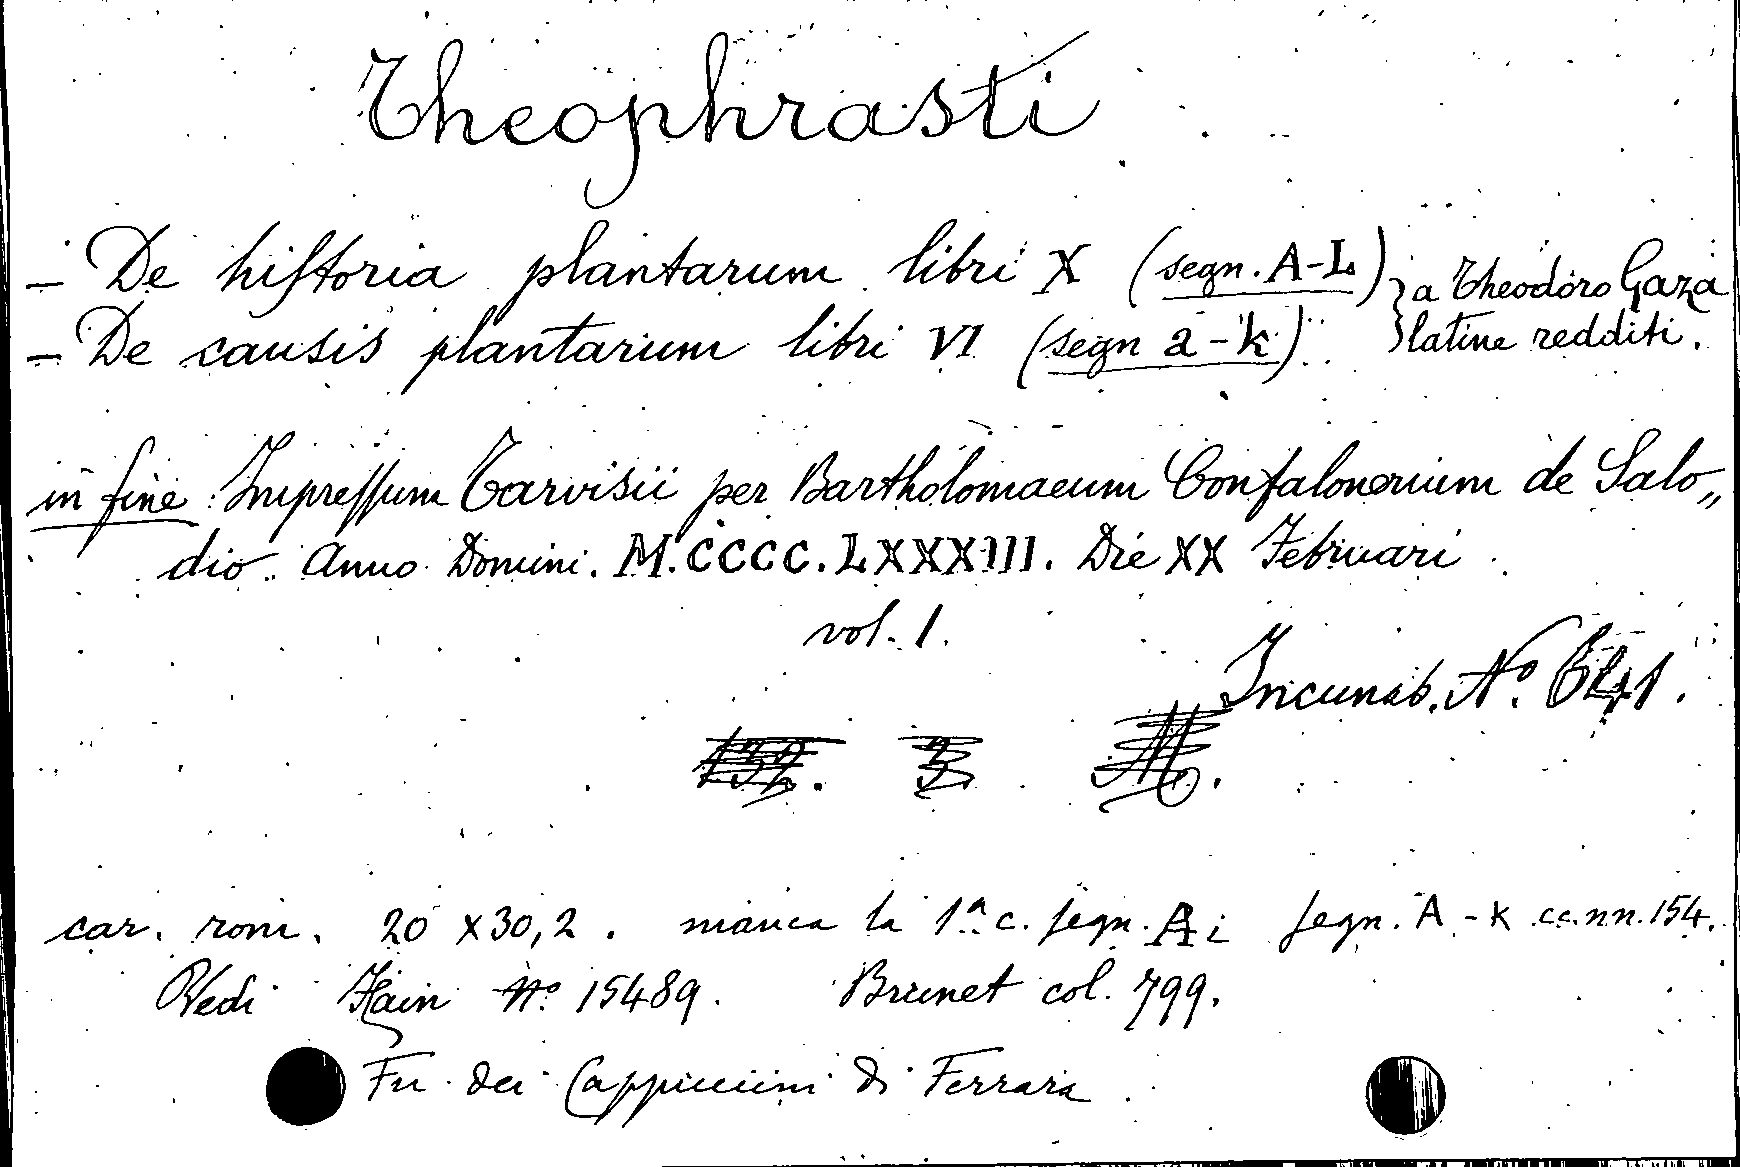 Theophrasti
- De hiſtoria plantarum libri X (segn. A-L) } a Theodoro Gaza
- De causis plantarum libri VI (segn a-k) } latine redditi.
in fine Impreſſum Tarvisii per Bartholomaeum Confalonerium de Salo„
dio. Anno Domini. M.CCCC.LXXXIII. Die XX Februari
vol. 1.
Incunab. Nº
car. rom. 20 x 30,2. manca la 1ª c. ſegn. A i ſegn. A - K cc.nn.154.
Vedi Hain Nº 15489. Brunet col. 799.
Fu dei Cappuccini di Ferrara